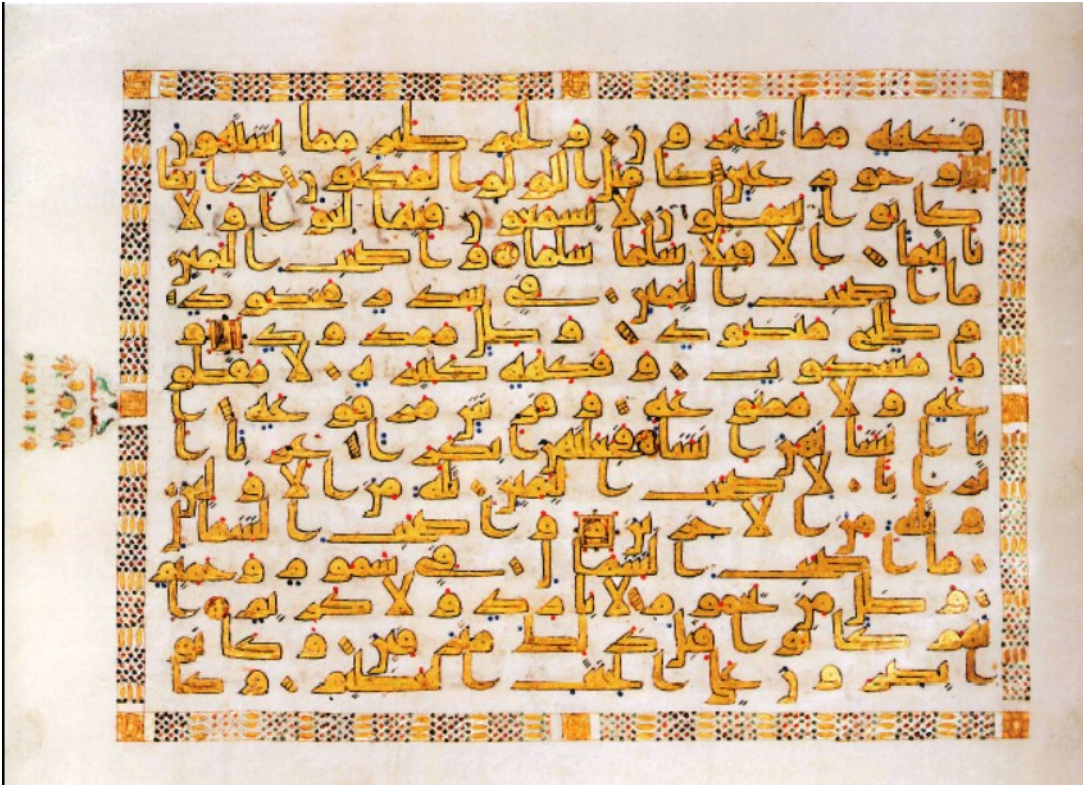 وفكهة مما يتخيرون ولحم طير مما يشتهون
وحور عين كامثل اللولو المكنون جزا بما
كانوا يعملون لا يسمعون فيها لغوا ولا
تاثيما الا قيلا سلما سلما واصحب اليمين
ما اصحب اليمين في سدر مخضود
وطلح منضود وظل ممدود و
ما مسكوب وفكهة كثيرة لا مقطو
عة ولا ممنوعة وفرش مرفوعة ا
نا انشانهن انشا فجعلنهن ابكرا عربا ا
ترابا لاصحب اليمين ثلة من الاولين
وثلة من الاخرين واصحب الشمال
ما اصحب الشمال في سموم وحميم
وظل من يحموم لا بارد ولا كريم ا
نهم كانوا قبل ذلك مترفين وكانو
ا يصرون على الحنث العظيم وكا